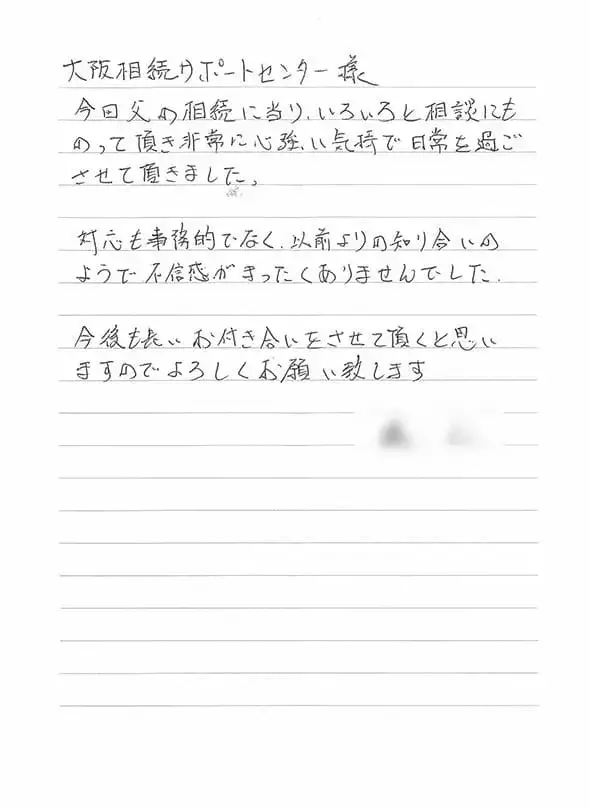 大阪相続サポートセンター様
今回父の相続に当り、いろいろと相談にも
のって頂き非常に心強い気持で日常を過ご
させて頂きました。
対応も事務的でなく、以前よりの知り合いの
ようで不信感がまったくありませんでした.
今後も長いお付き合いをさせて頂くと思い
ますのでよろしくお願い致します